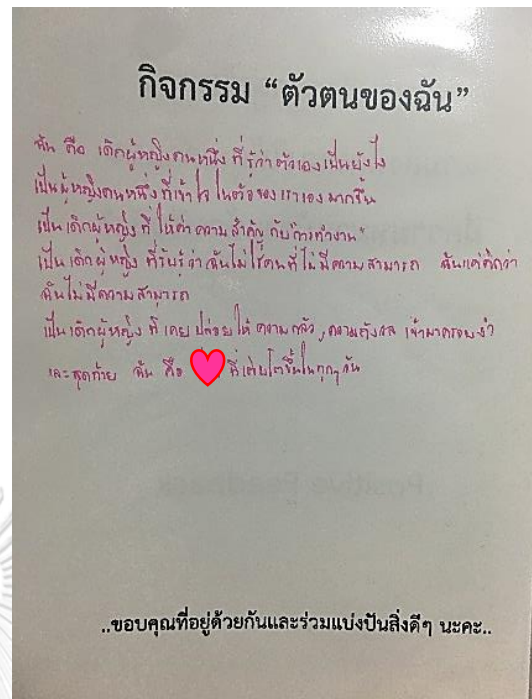 กิจกรรม “ตัวตนของฉัน”
ฉัน คือ เด็กผู้หญิงคนหนึ่ง ที่ รู้ว่าตัวเองเป็นยังไง
เป็นผู้หญิงคนหนึ่งที่เข้าใจ ในตัวของเราเองมากขึ้น
เป็นเด็กผู้หญิง ที่ ให้ค่า ความสำคัญ กับ "การทำงาน"
เป็นเด็กผู้หญิง ที่รับรู้ว่า ฉันไม่ใช่คนที่ไม่มีความสามารถ ฉันแค่คิดว่า
ฉันไม่มีความสามารถ
เป็นเด็กผู้หญิง ที่ เคย ปล่อยให้ ความกลัว, ความกังวล เข้ามาครอบงำ
และสุดท้าย ฉัน คือ ที่เติบโตขึ้นในทุกๆ วัน
..ขอบคุณที่อยู่ด้วยกันและร่วมแบ่งปันสิ่งดีๆ นะคะ..